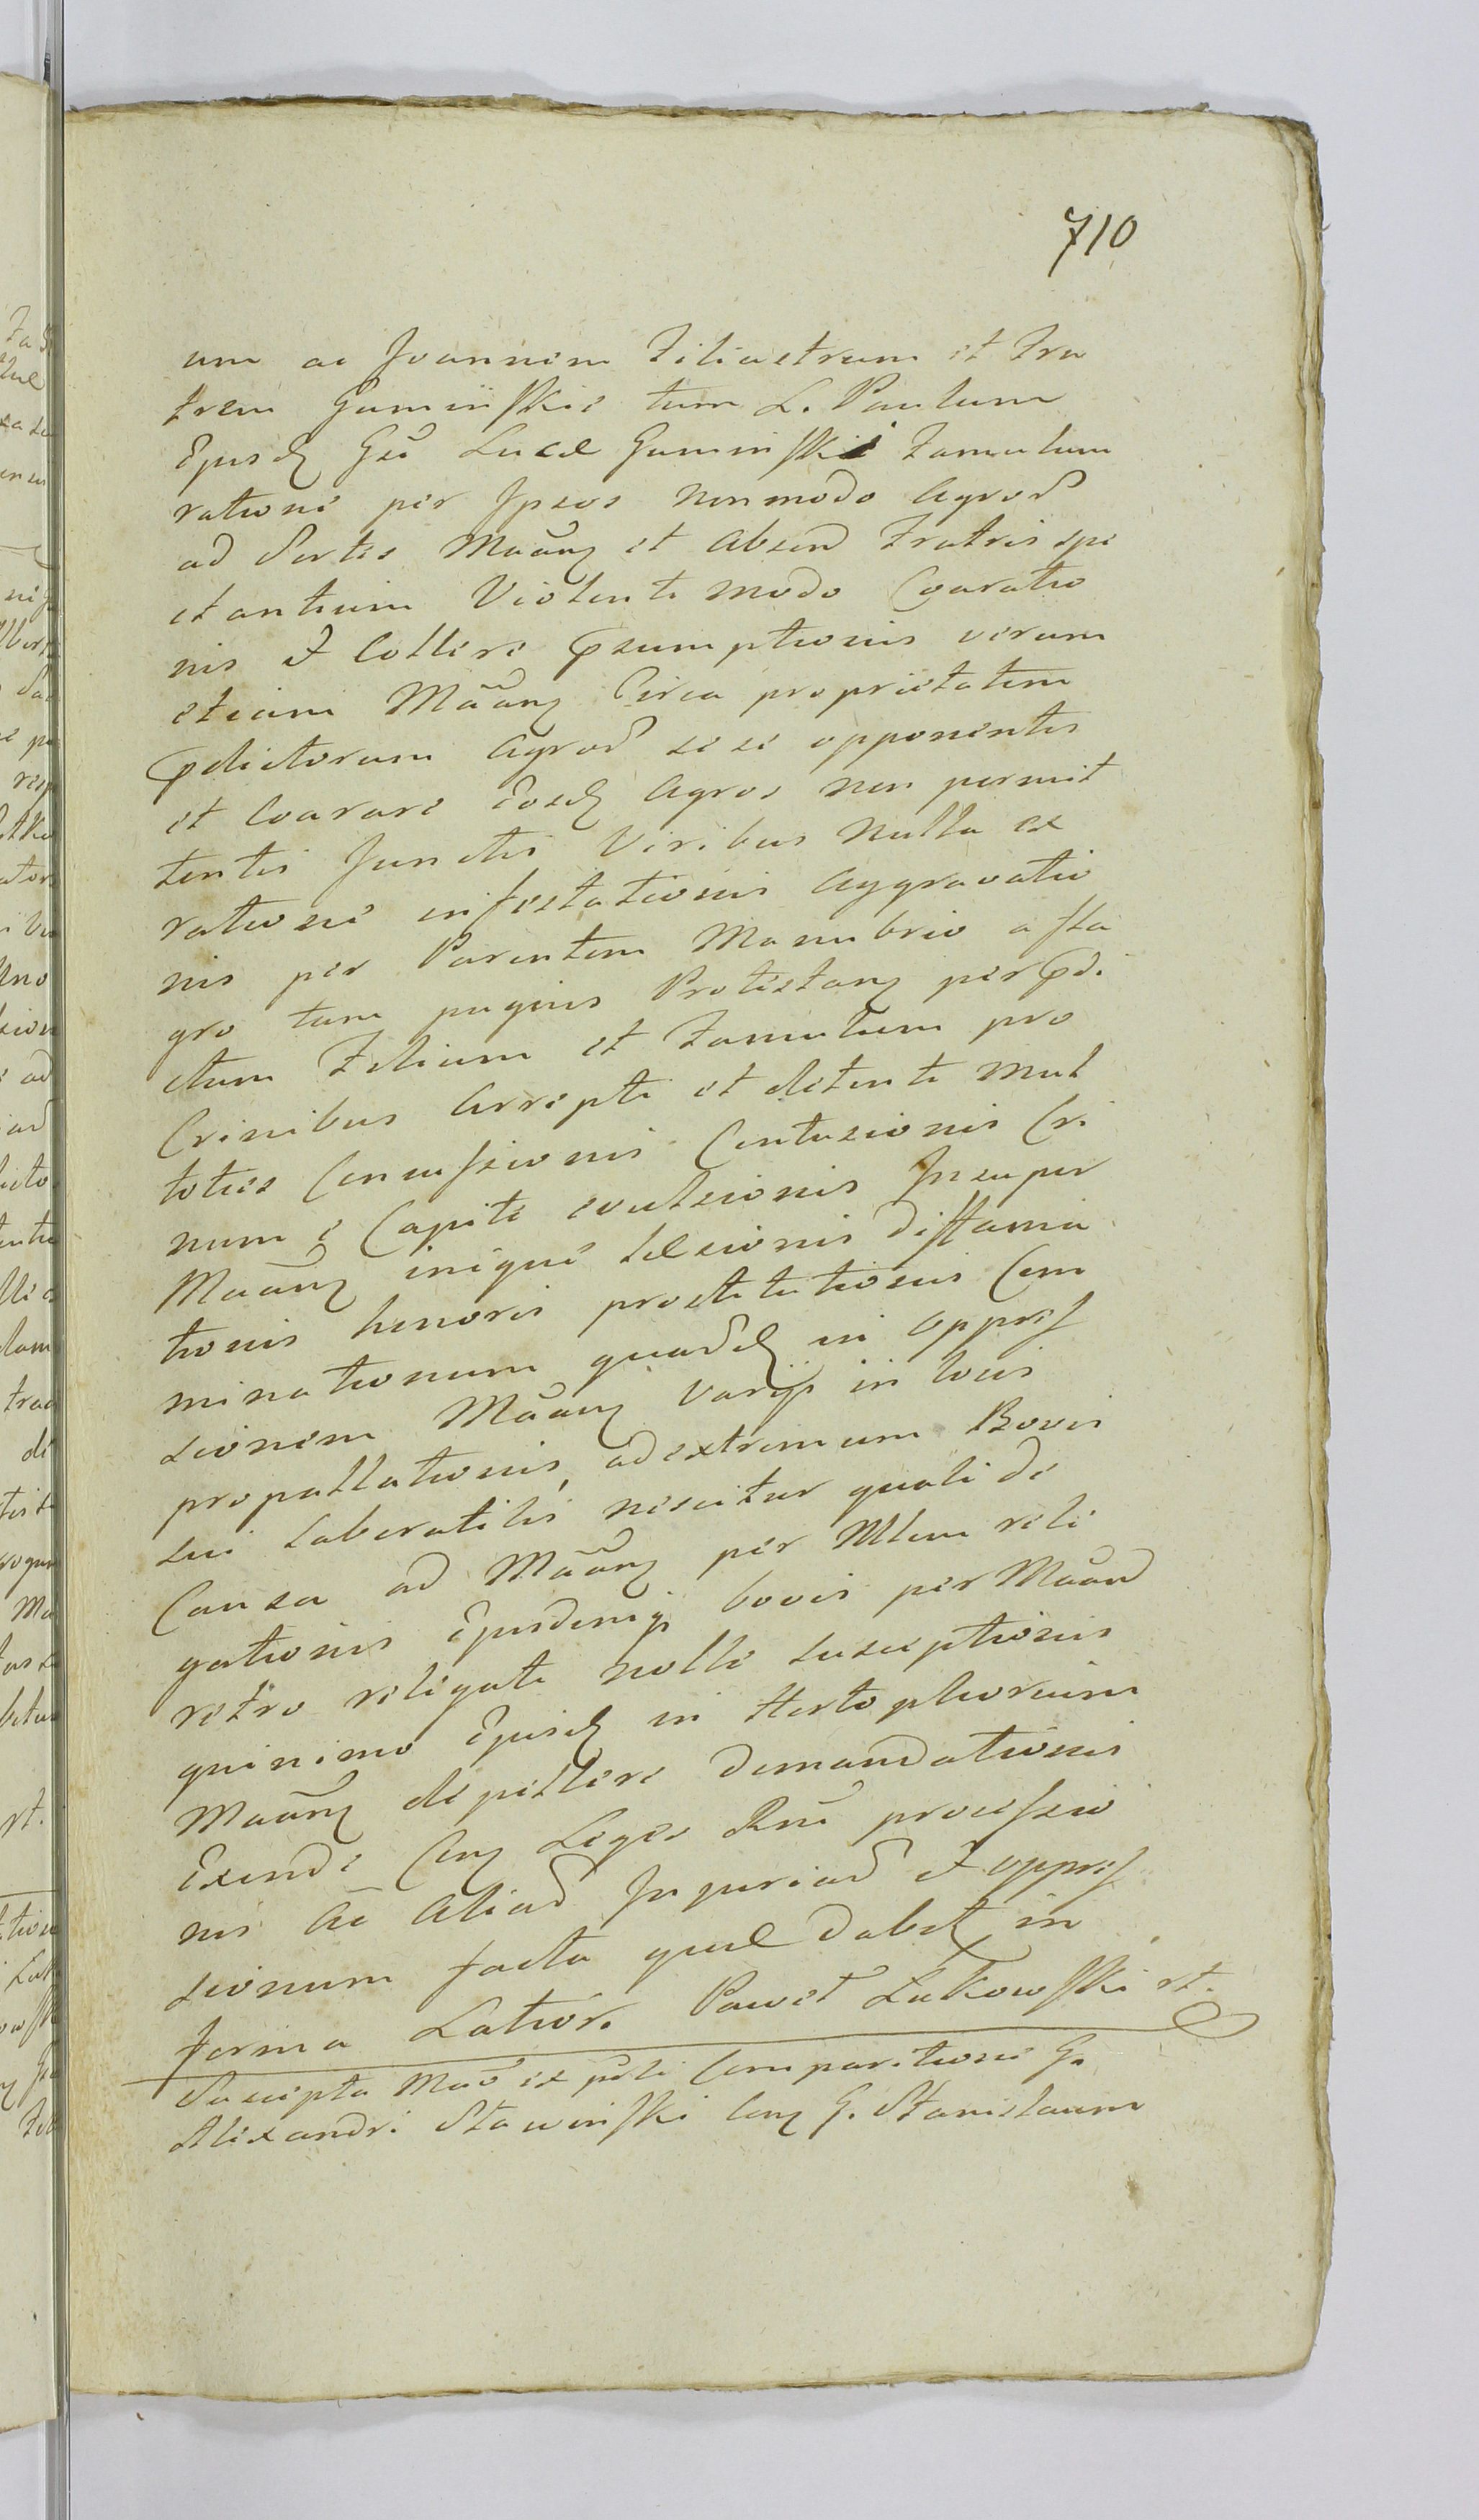 710
um ac Joannem Filiastrum et Fra
trem Guminskie tum L. Paulum
Ejusd Gsi Lucae Guminski Famulum
ratione per Ipsos non modo Agror
ad Sortes Maang et absen Fratris spe
ctantium Violenti modo Coaratio
nis et Collere psumptionis verum
etiam Maang Circa proprietatem
pdictorum Agror sese opponentis
et Coarare Eosd Agros non permit
tentis Junctis Viribus Nulla ex
ratione infestationis Aggravatio
nis per Parentem Manubrio a fla
gro tum pugnis Protestang per pdi
ctum Filium et Famulum pro
Crinibus Arrepti et detenti mul
toties Concussionis Contusionis Cri
num e Capite evulsionis Insuper
Maang inique laesionis Diffama
tionis honoris prostitutionis Com
minationum quard in oppres
sionem Maang varijs in locis
propallationis, ad extremum Bovis
sui laboratilis nescitur quali de
Causa ad Maang per Mlem reli
gationis Ejusdemq bovis per Maan
retro religati nolle susceptionis
quinimo Ejusd in Hortophorium
Maang depellere Demandationis
Exinde Cong Leges Rni processio
nis Ac Aliar Injuriar et oppres
sionum facta quae dabit in
forma Latiori. Paweł Łukowski rt.
Suscepta Mao ex psti Comparitione G.
Alexandri Stawinski Cong G. Stanislaum